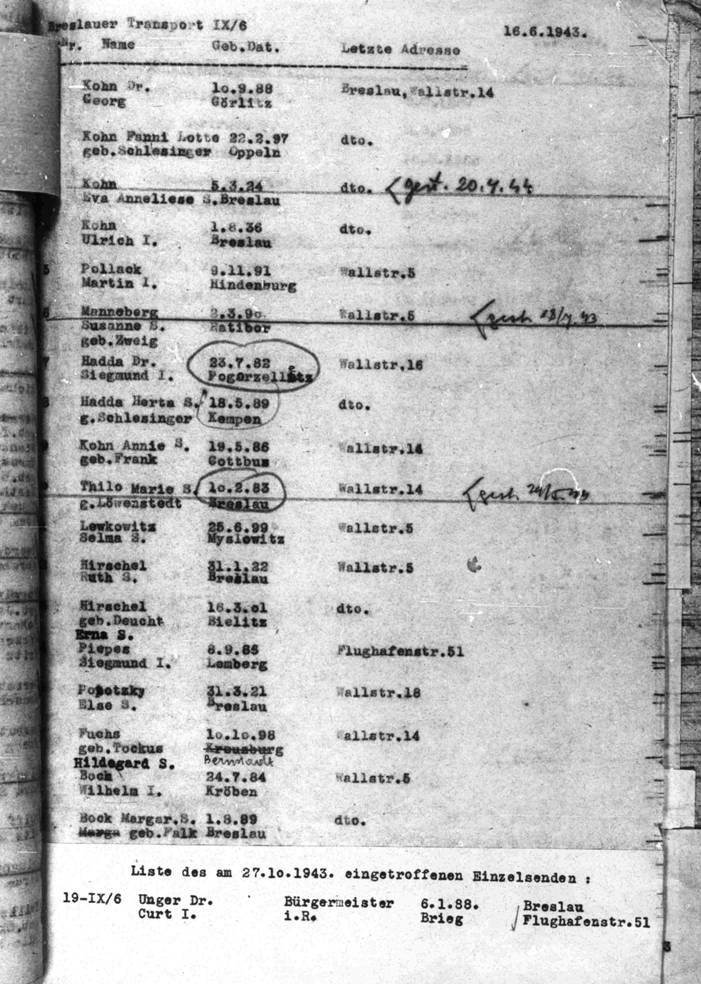 Breslauer Transport IX/6 16.6.1943.
Nr. Name Geb.Dat. Letzte Adresse
Kohn Dr. 10.9.88 Breslau,Wallstr.14
Georg Görlitz
Kohn Fanni Lotte 22.2.97 dto.
geb.Schlesinger Oppeln
Kohn 5.3.24 dto. gest. 20.4.44
Eva Anneliese S.Breslau
Kohn 1.8.36 dto.
Ulrich I. Breslau
5 Pollack 9.11.91 Wallstr.5
Martin I. Hindenburg
6 Manneberg 2.3.90 Wallstr.5 gest.
Susanne S. Ratibor
geb.Zweig
7 Hadda Dr. 23.7.82 Wallstr.16
Siegmund I.
8 Hadda Herta S. 18.5.89 dto.
g.Schlesinger Kempen
9 Kohn Annie S. 19.5.86 Wallstr.14
geb.Frank Cottbus
Thilo Marie S. 10.2.83 Wallstr.14 gest.
g.Löwenstedt Breslau
Lewkowitz 25.6.99 Wallstr.5
Selma S. Myslowitz
Hirschel 31.1.22 Wallstr.5
Ruth S. Breslau
Hirschel 16.3.01 dto.
geb.Deucht Bielitz
Erna S.
Piepes 8.9.85 Flughafenstr.51
Siegmund I. Lemberg
Popotzky 31.3.21 Wallstr.18
Else S. Breslau
Fuchs 10.10.98 Wallstr.14
geb.Tockus Kreuzburg
Hildegard S. Bernstadt
Bock 24.7.84 Wallstr.5
Wilhelm I. Kröben
Bock Margar.S. 1.8.89 dto.
Marga geb.Falk Breslau
Liste des am 27.10.1943. eingetroffenen Einzelsenden :
19-IX/6 Unger Dr. Bürgermeister 6.1.88. Breslau
Curt I. i.R. Brieg Flughafenstr.51